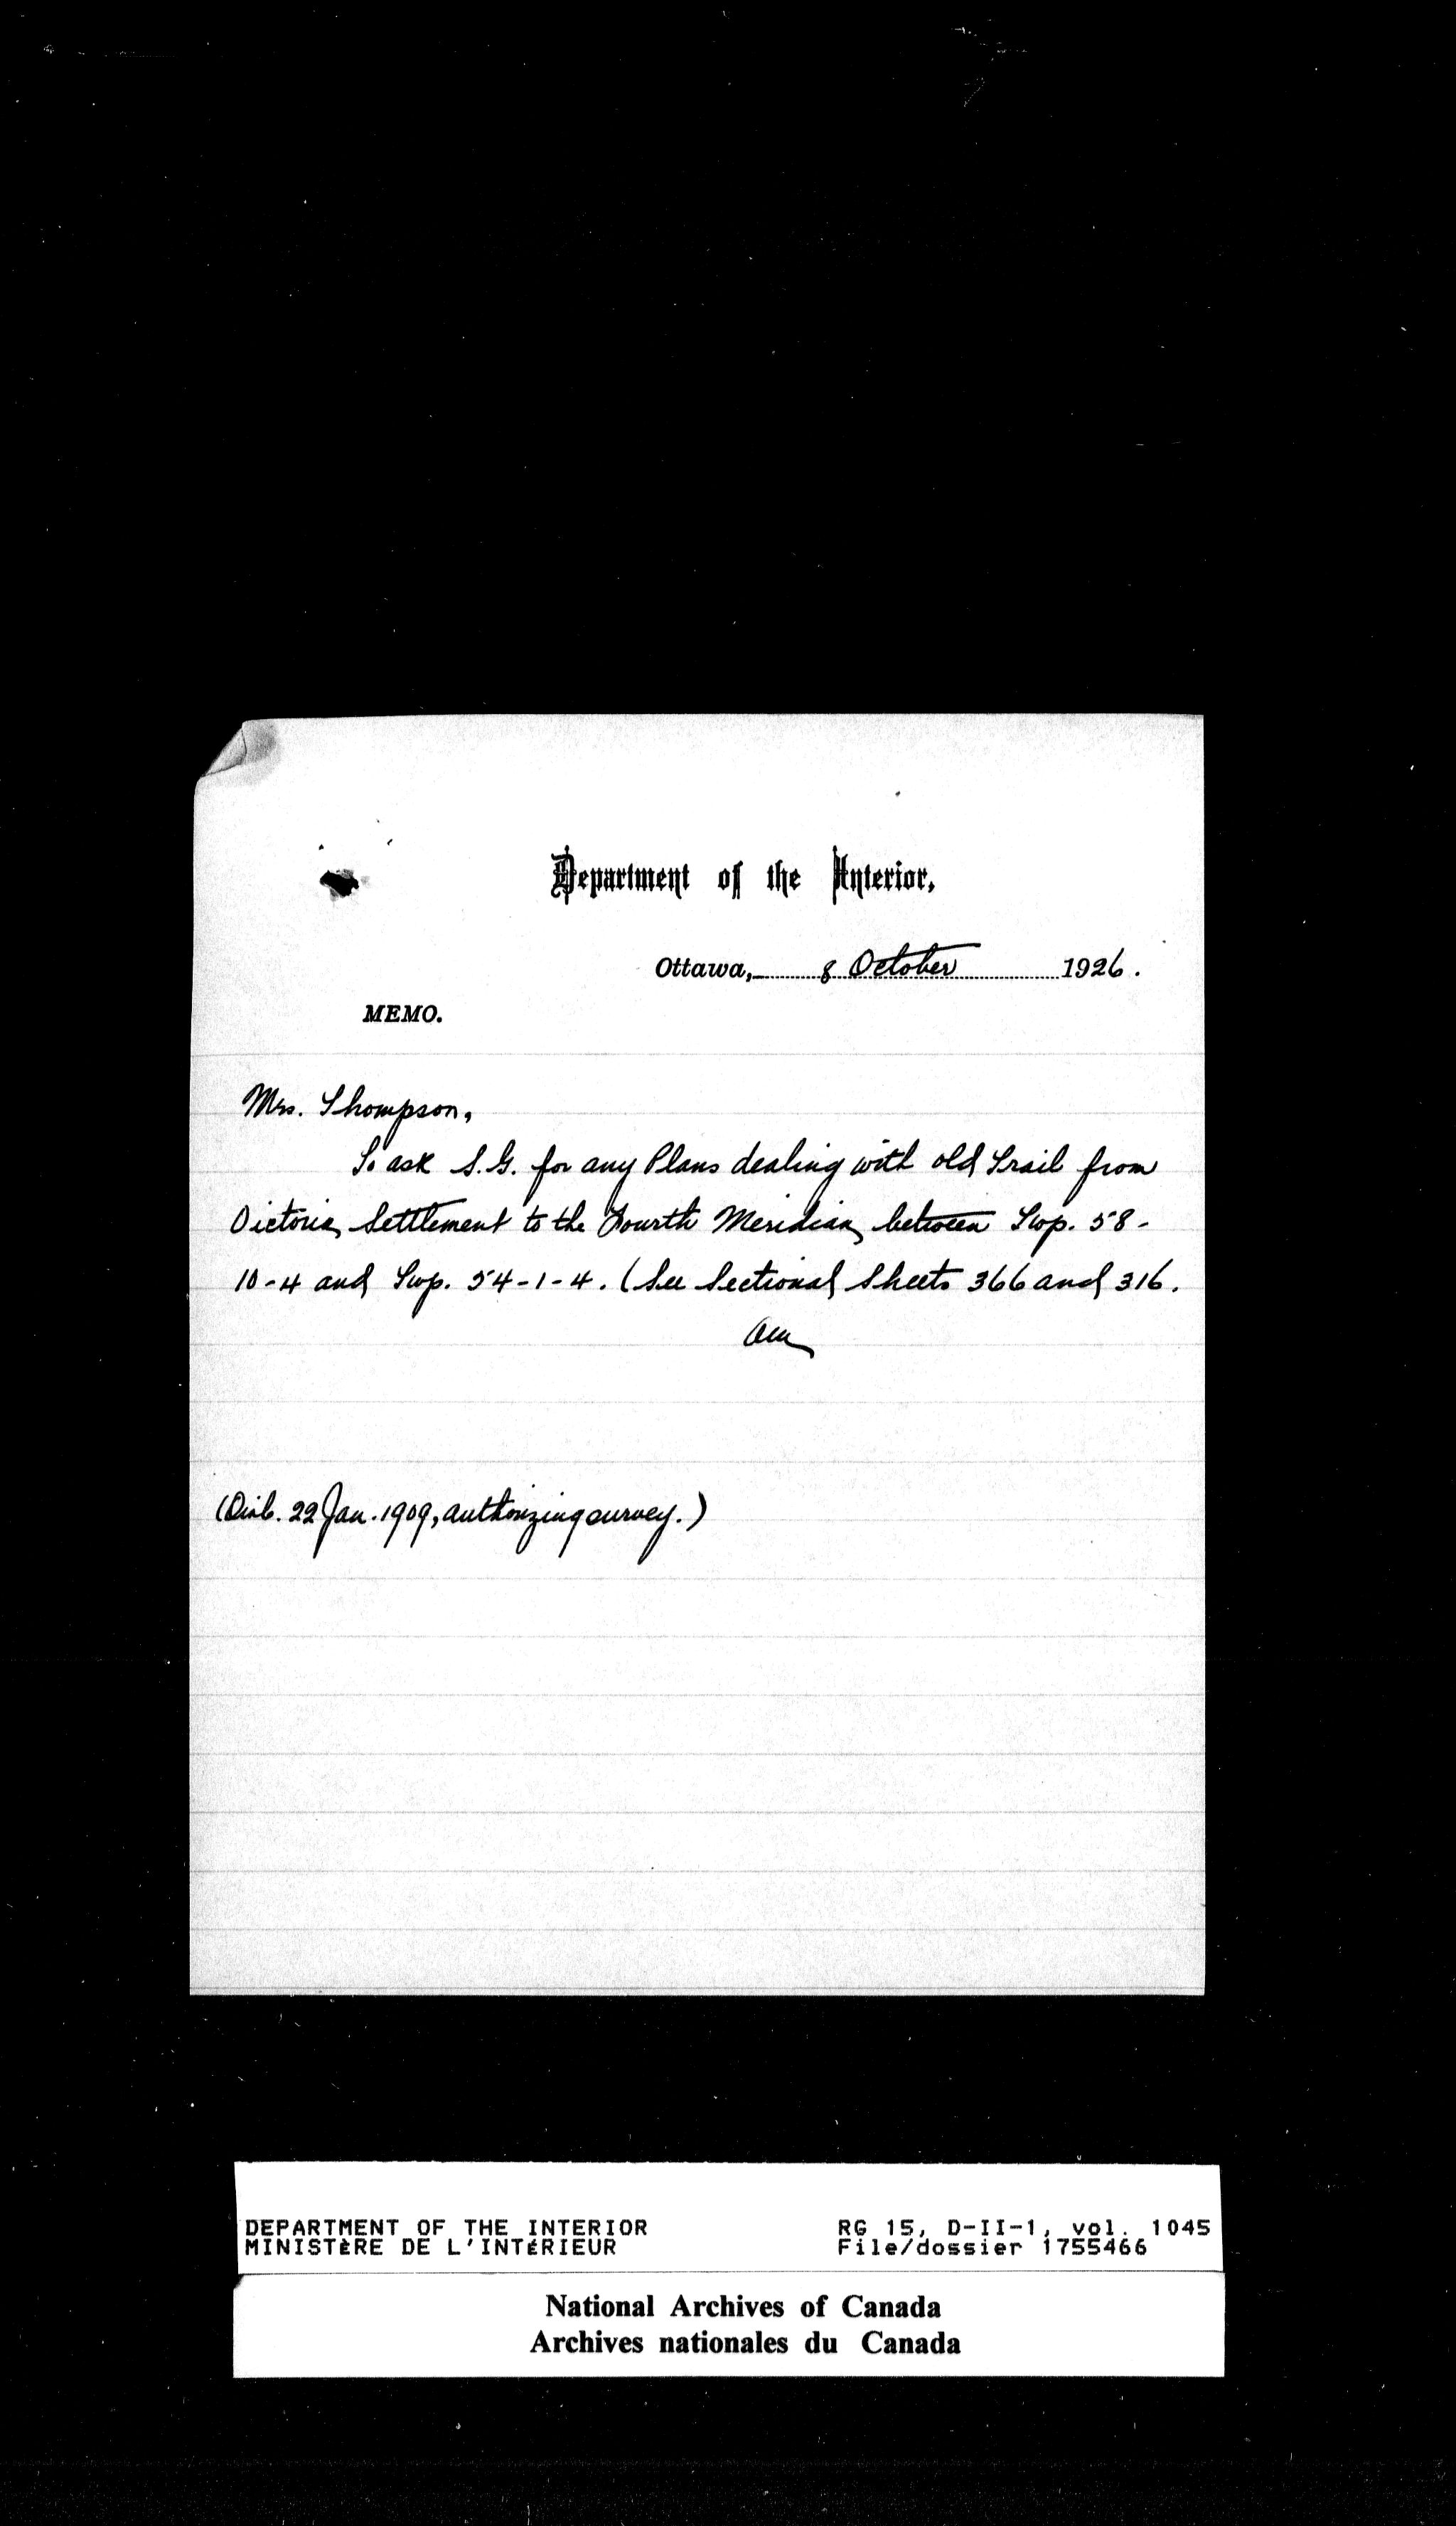 Department of the Interior,
Ottawa, 8 October 1926.
MEMO.
Mrs. Thompson,
To ask S.G. for any Plans dealing with old Trail from
Victoria Settlement to the Fourth Meridian, between Twp. 58-
10-4 and Twp. 54-1-4. (See Sectional Sheets 366 and 316.
(O in C. 22 Jan. 1909, authorizing survey.)
DEPARTMENT OF THE INTERIOR RG 15, D-II-1, vol. 1045
MINISTÈRE DE L'INTÉRIEUR File/dossier 1755466
National Archives of Canada
Archives nationales du Canada